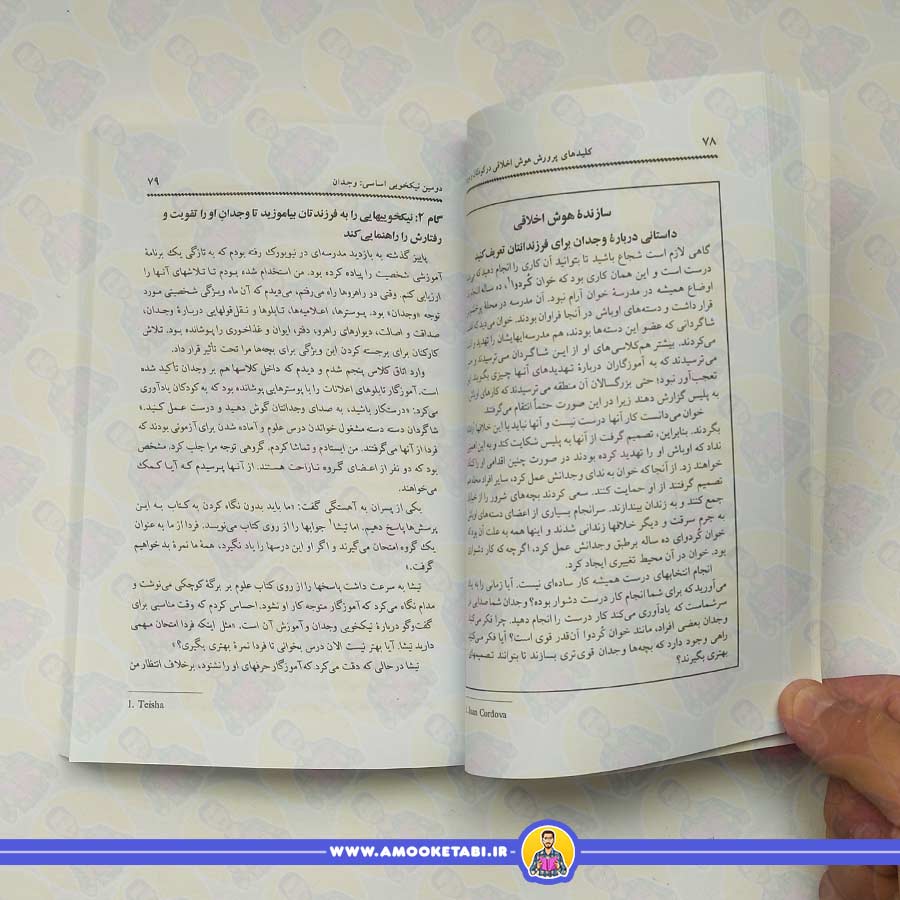 ۷۸
کلیدهای پرورش هوش اخلاقی در کودکان و
سازندهٔ هوش اخلاقی
داستانی دربارهٔ وجدان برای فرزندانتان تعریف کنید
گاهی لازم است شجاع باشید تا بتوانید آن کاری را انجام دهید که
درست است و این همان کاری بود که خوان کُردوا۱، ده ساله انجام
اوضاع همیشه در مدرسهٔ خوان آرام نبود. آن مدرسه در محلهٔ
قرار داشت و دسته‌های اوباش در آنجا فراوان بودند. خوان می‌دید که
شاگردانی که عضو این دسته‌ها بودند، هم مدرسه‌ایهایشان را تهدید و
می‌کردند. بیشتر هم‌کلاسی‌های او از این شاگردان می‌ترسیدند و
می‌ترسیدند که به آموزگاران دربارهٔ تهدیدهای آنها چیزی بگویند.
تعجب‌آور نبود؛ حتی بزرگسالان آن منطقه می‌ترسیدند که کارهای اوباش
به پلیس گزارش دهند زیرا در این صورت حتماً انتقام می‌گرفتند.
خوان می‌دانست کار آنها درست نیست و آنها نباید با این خلافها
بگردند. بنابراین، تصمیم گرفت از آنها به پلیس شکایت کند و به این
نداد که اوباش او را تهدید کرده بودند در صورت چنین اقدامی او را
خواهند زد. از آنجا که خوان به ندای وجدانش عمل کرد، سایر افراد محله
تصمیم گرفتند از او حمایت کنند. سعی کردند بچه‌های شرور را از
جمع کنند و به زندان بیندازند. سرانجام بسیاری از اعضای دسته‌های اوباش
به جرم سرقت و دیگر خلافها زندانی شدند و اینها همه به علت آن بود
خوان کُردوای ده ساله برطبق وجدانش عمل کرد، اگرچه که کار دشواری
بود. خوان در آن محیط تغییری ایجاد کرد.
انجام انتخابهای درست همیشه کار ساده‌ای نیست. آیا زمانی را به
می‌آورید که برای شما انجام کار درست دشوار بوده؟ وجدان شما صدایی در
سر شماست که یادآوری می‌کند کار درست را انجام دهید. چرا فکر می‌کنید
وجدان بعضی افراد، مانند خوان کُردوا آن‌قدر قوی است؟ آیا فکر می‌کنید
راهی وجود دارد که بچه‌ها وجدان قوی‌تری بسازند تا بتوانند تصمیمهای
بهتری بگیرند؟
Juan Cordova
دومین نیکخویی اساسی: وجدان
۷۹
گام ۲: نیکخوییهایی را به فرزندتان بیاموزید تا وجدانِ او را تقویت و
رفتارش را راهنمایی کند
پاییز گذشته به بازدید مدرسه‌ای در نیویورک رفته بودم که به تازگی یک برنامهٔ
آموزشی شخصیت را پیاده کرده بود. من استخدام شده بودم تا تلاشهای آنها را
ارزیابی کنم. وقتی در راهروها راه می‌رفتم، می‌دیدم که آن ماه ویژگی شخصیتی مورد
توجه «وجدان» بود. پوسترها، اعلامیه‌ها، تابلوها و نقل‌قولهایی دربارهٔ وجدان،
صداقت و اصالت، دیوارهای راهرو، دفتر، ایوان و غذاخوری را پوشانده بود. تلاش
کارکنان برای برجسته کردن این ویژگی برای بچه‌ها مرا تحت تأثیر قرار داد.
وارد اتاق کلاس پنجم شدم و دیدم که داخل کلاسها هم بر وجدان تأکید شده
است. آموزگار تابلوهای اعلانات را با پوسترهایی پوشانده بود که به کودکان یادآوری
می‌کرد: «درستکار باشید، به صدای وجدانتان گوش دهید و درست عمل کنید.»
شاگردان دسته دسته مشغول خواندن درس علوم و آماده شدن برای آزمونی بودند که
فردا از آنها می‌گرفتند. من ایستادم و تماشا کردم. گروهی توجه مرا جلب کرد. مشخص
بود که دو نفر از اعضای گروه ناراحت هستند. از آنها پرسیدم که آیا کمک
می‌خواهند.
یکی از پسران به آهستگی گفت: «ما باید بدون نگاه کردن به کتاب به این
پرسش‌ها پاسخ دهیم. اما تیشا۱ جوابها را از روی کتاب می‌نویسد. فردا از ما به عنوان
یک گروه امتحان می‌گیرند و اگر او این درسها را یاد نگیرد، همهٔ ما نمرهٔ بد خواهیم
گرفت.»
تیشا به سرعت داشت پاسخها را از روی کتاب علوم بر برگهٔ کوچکی می‌نوشت و
مدام نگاه می‌کرد که آموزگار متوجه کار او نشود. احساس کردم که وقت مناسبی برای
گفت‌وگو دربارهٔ نیکخویی وجدان و آموزش آن است. «مثل اینکه فردا امتحان مهمی
دارید تیشا. آیا بهتر نیست الان درس بخوانی تا فردا نمرهٔ بهتری بگیری؟»
تیشا در حالی که دقت می‌کرد که آموزگار حرفهای او را نشنود، برخلاف انتظار من
1. Teisha
WWW.AMOOKETABI.IR